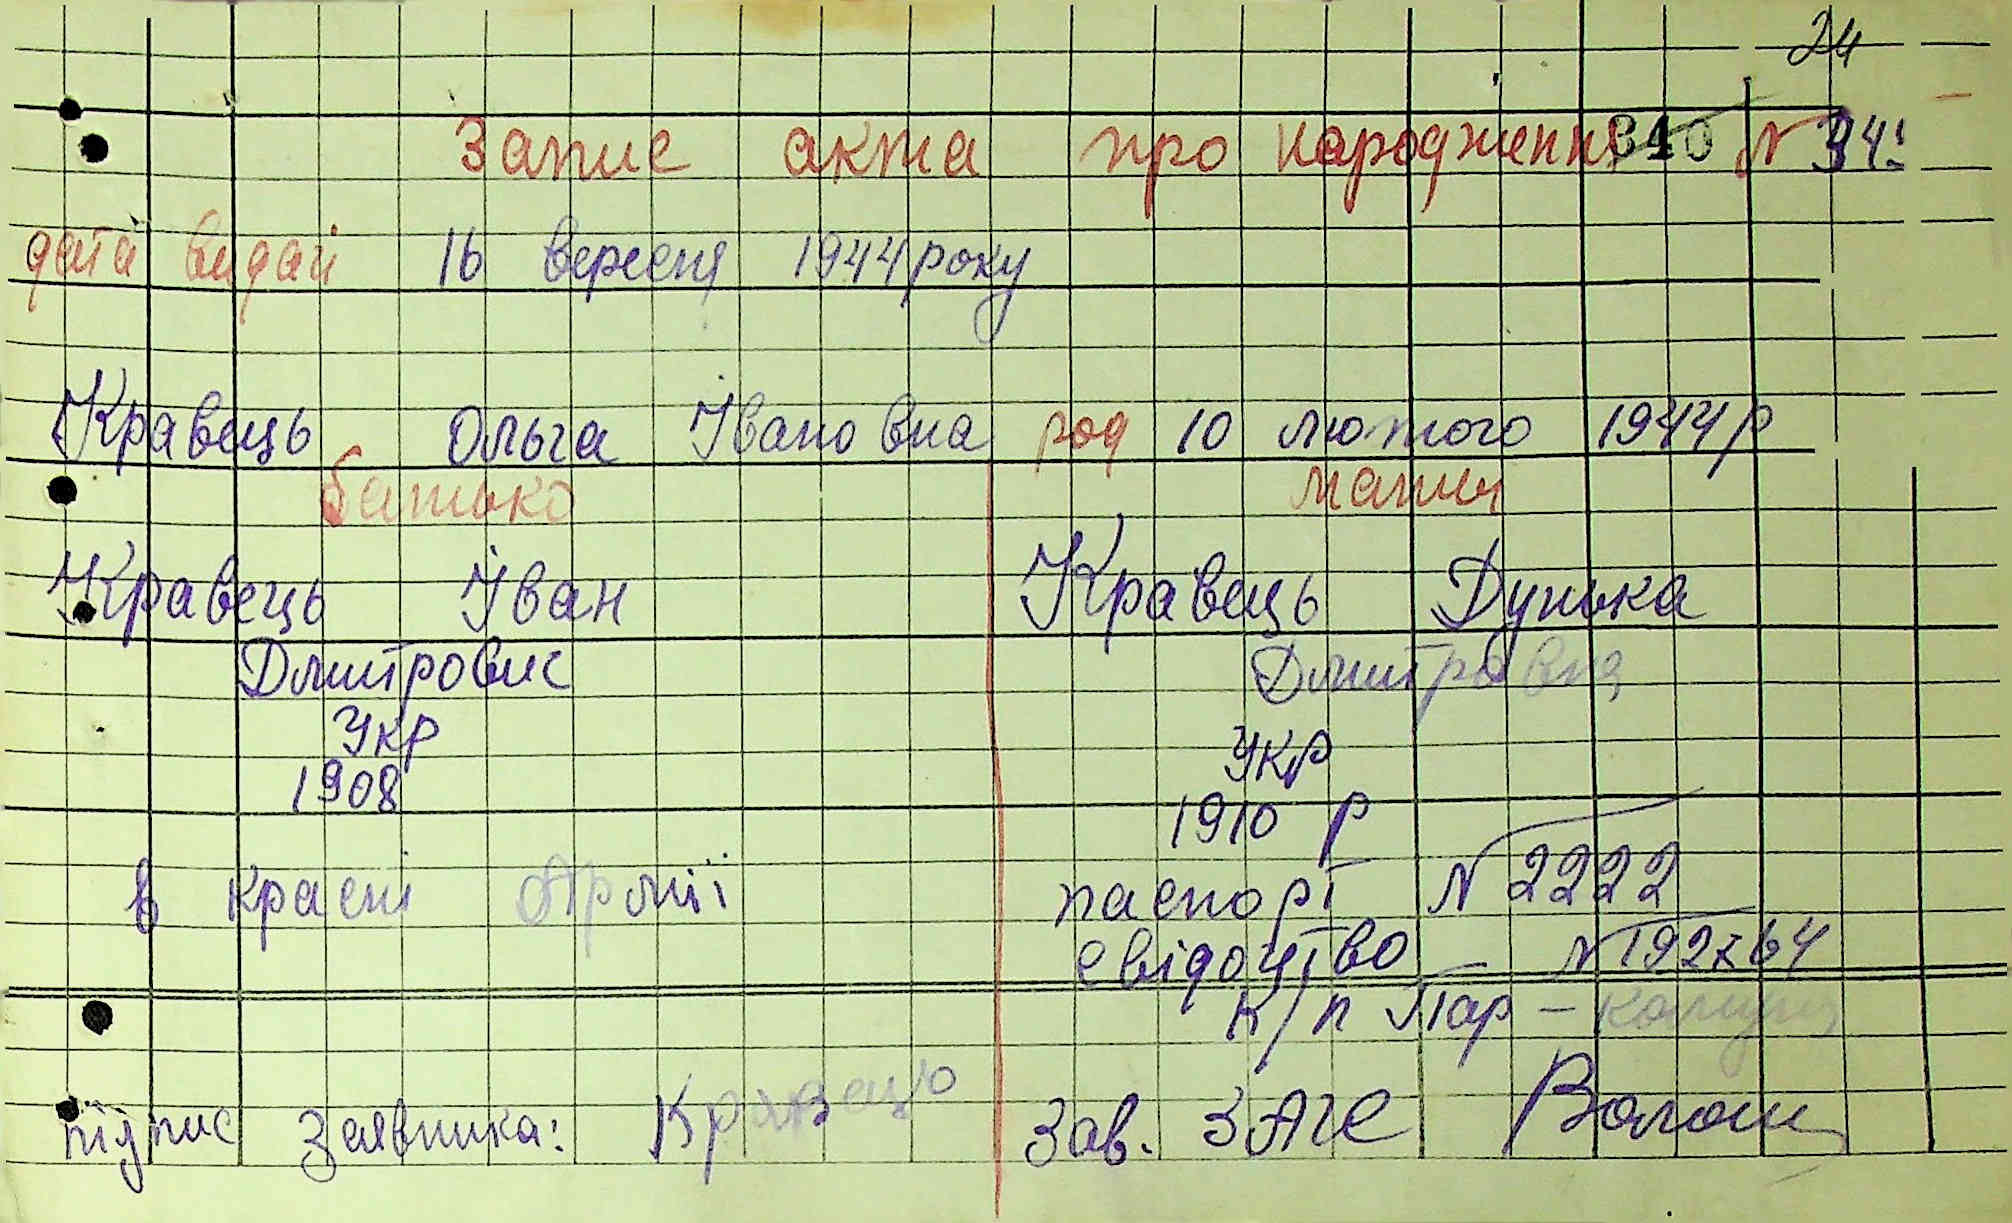 24
Запис акта про народження 340 № 341
дата видачі 16 вересня 1944 року
Кравець Ольга Івановна род 10 лютого 1944 р
батько мати
Кравець Іван Кравець Дунька
Дмитровис Дмитровна
Укр Укр
1908 1910 р
в красні Армії паспорт № 2222
свідоцтво № 192764
к/п Пар -
підпис заявника: Кравець Зав. ЗАГС Волош